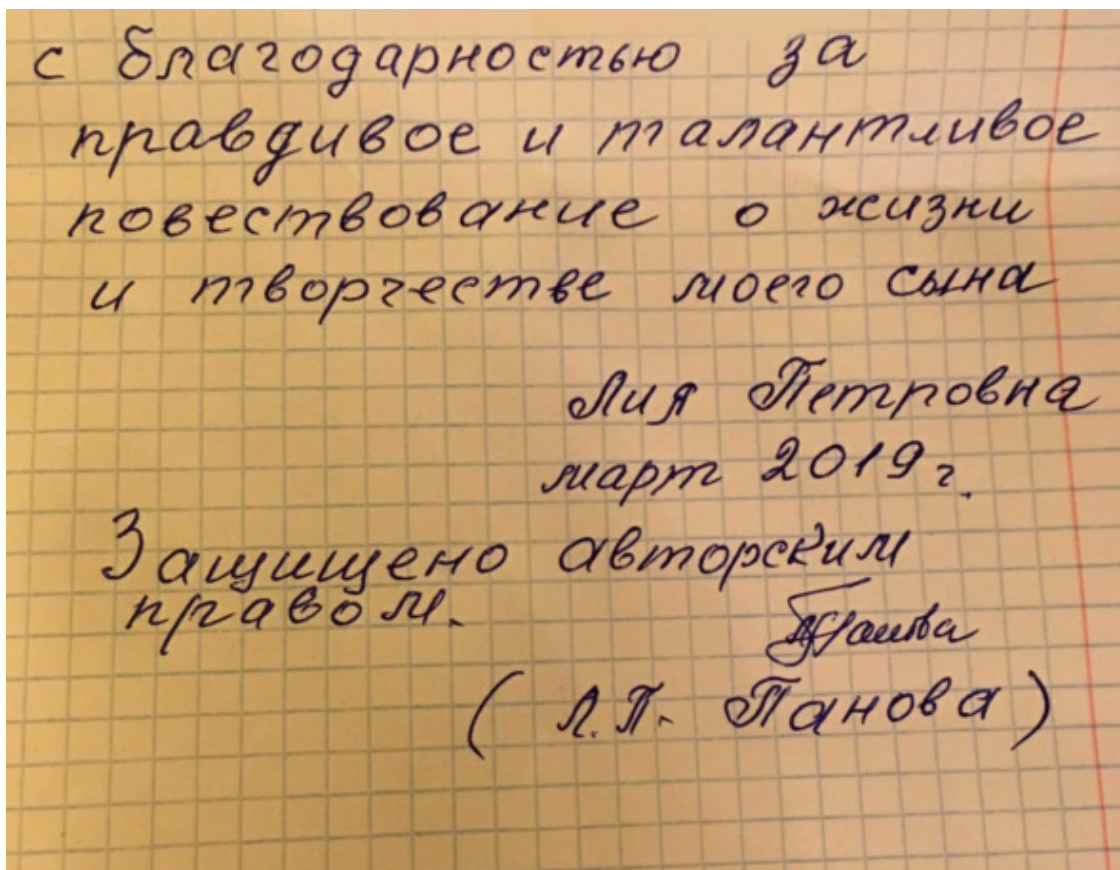 с благодарностью за
правдивое и талантливое
повествование о жизни
и творчестве моего сына
Лия Петровна
март 2019 г.
Защищено авторским
правом.
(Л.П. Панова)